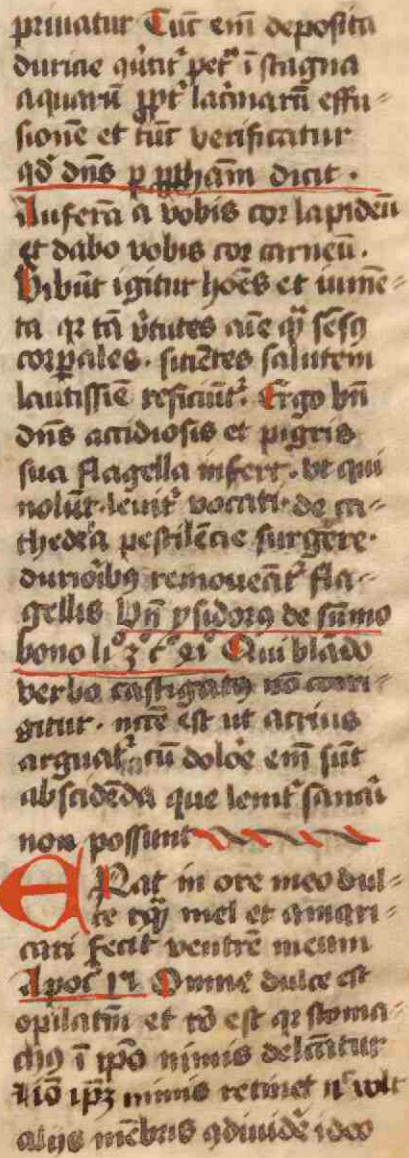 priuatur Tūc em̄ deposita
duricie
aquarū lac̓marū effu-
sionē et tūc verificatur
qd̓ dn̄s p ꝓph̄am dicit .
Auferā a vobis cor lapideū
et dabo vobis cor carneū .
Bibūt igitur hoēs et iumē-
ta qꝛ tā v̓tutes aīe qͣ sēsꝰ
corꝑales . siciētes salutem
lautissīe reficiūt᷑ . Ergo bn̄
dn̄s accidiosis et pigris
sua flagella infert . vt qui
nolūt leuit᷑ vocati de ca-
thedra pestilēcie surgere .
duriorībꝰ remoueāt᷑ fla-
gellis Vn̄ ysidorꝰ de sūmo
bono lio 3o co Qui blādo
verbo castigatꝰ nō corri-
gitur . nc̄cē est ut acrius
arguat᷑ cū dolore em̄ sūt
abscidēda que lenit᷑ sanari
non possunt
ERat in ore meo dul-
ce tqͣ mel et amari-
cari fecit ventrē meum
Apoc̓ Omne dulce est
opilatiū et rō est qꝛ stoma-
chꝰ ī ip̄o nimis delc̄atur
Iōo ip̄ꝫ nimis retinet nͨ vult
alijs mēbris ꝯdiuide᷑ ideo